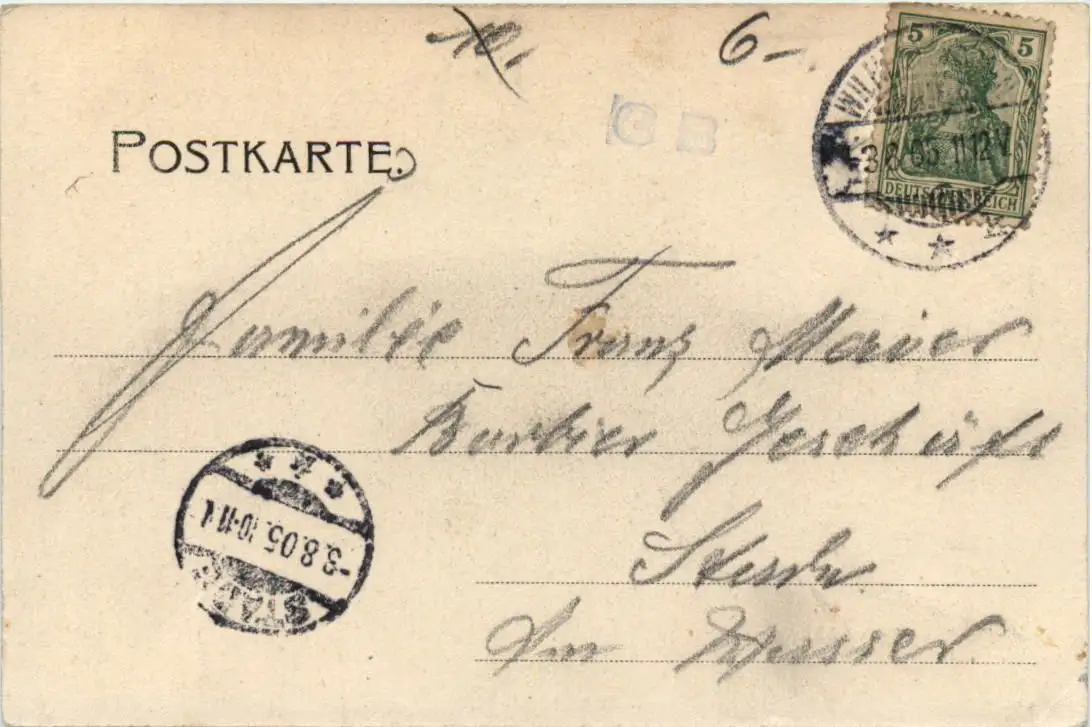 10.
6-.
5 5
WIL
-3.8.05. 11-12V
DEUTSCHES REICH
G B
POSTKARTE.
Familie Franz Maier
Barbier Geschäft
Stade
Am Wasser.
-3.8.05. 10-11 V.
STADE